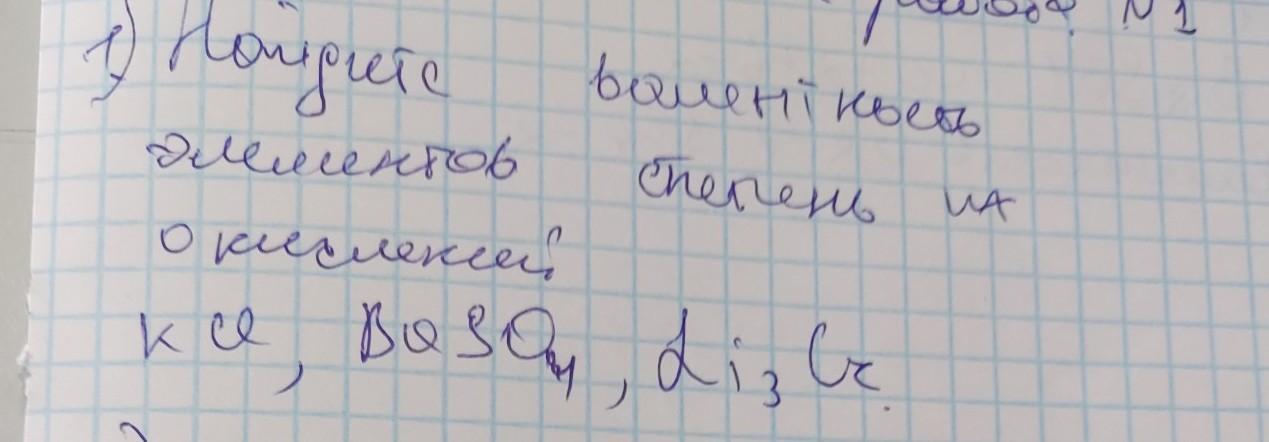 работа N 1
1) Найдите валентность
элементов степень на
окислений
KCl, BaSO4, Li3Cr.